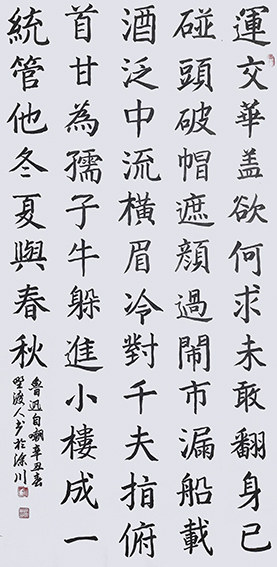 運交華盖欲何求未敢翻身已
碰頭破帽遮顔過鬧市漏船載
酒泛中流橫眉冷對千夫指俯
首甘為孺子牛躲進小樓成一
統管他冬夏與春秋
魯迅自嘲辛丑春
渡人书於川